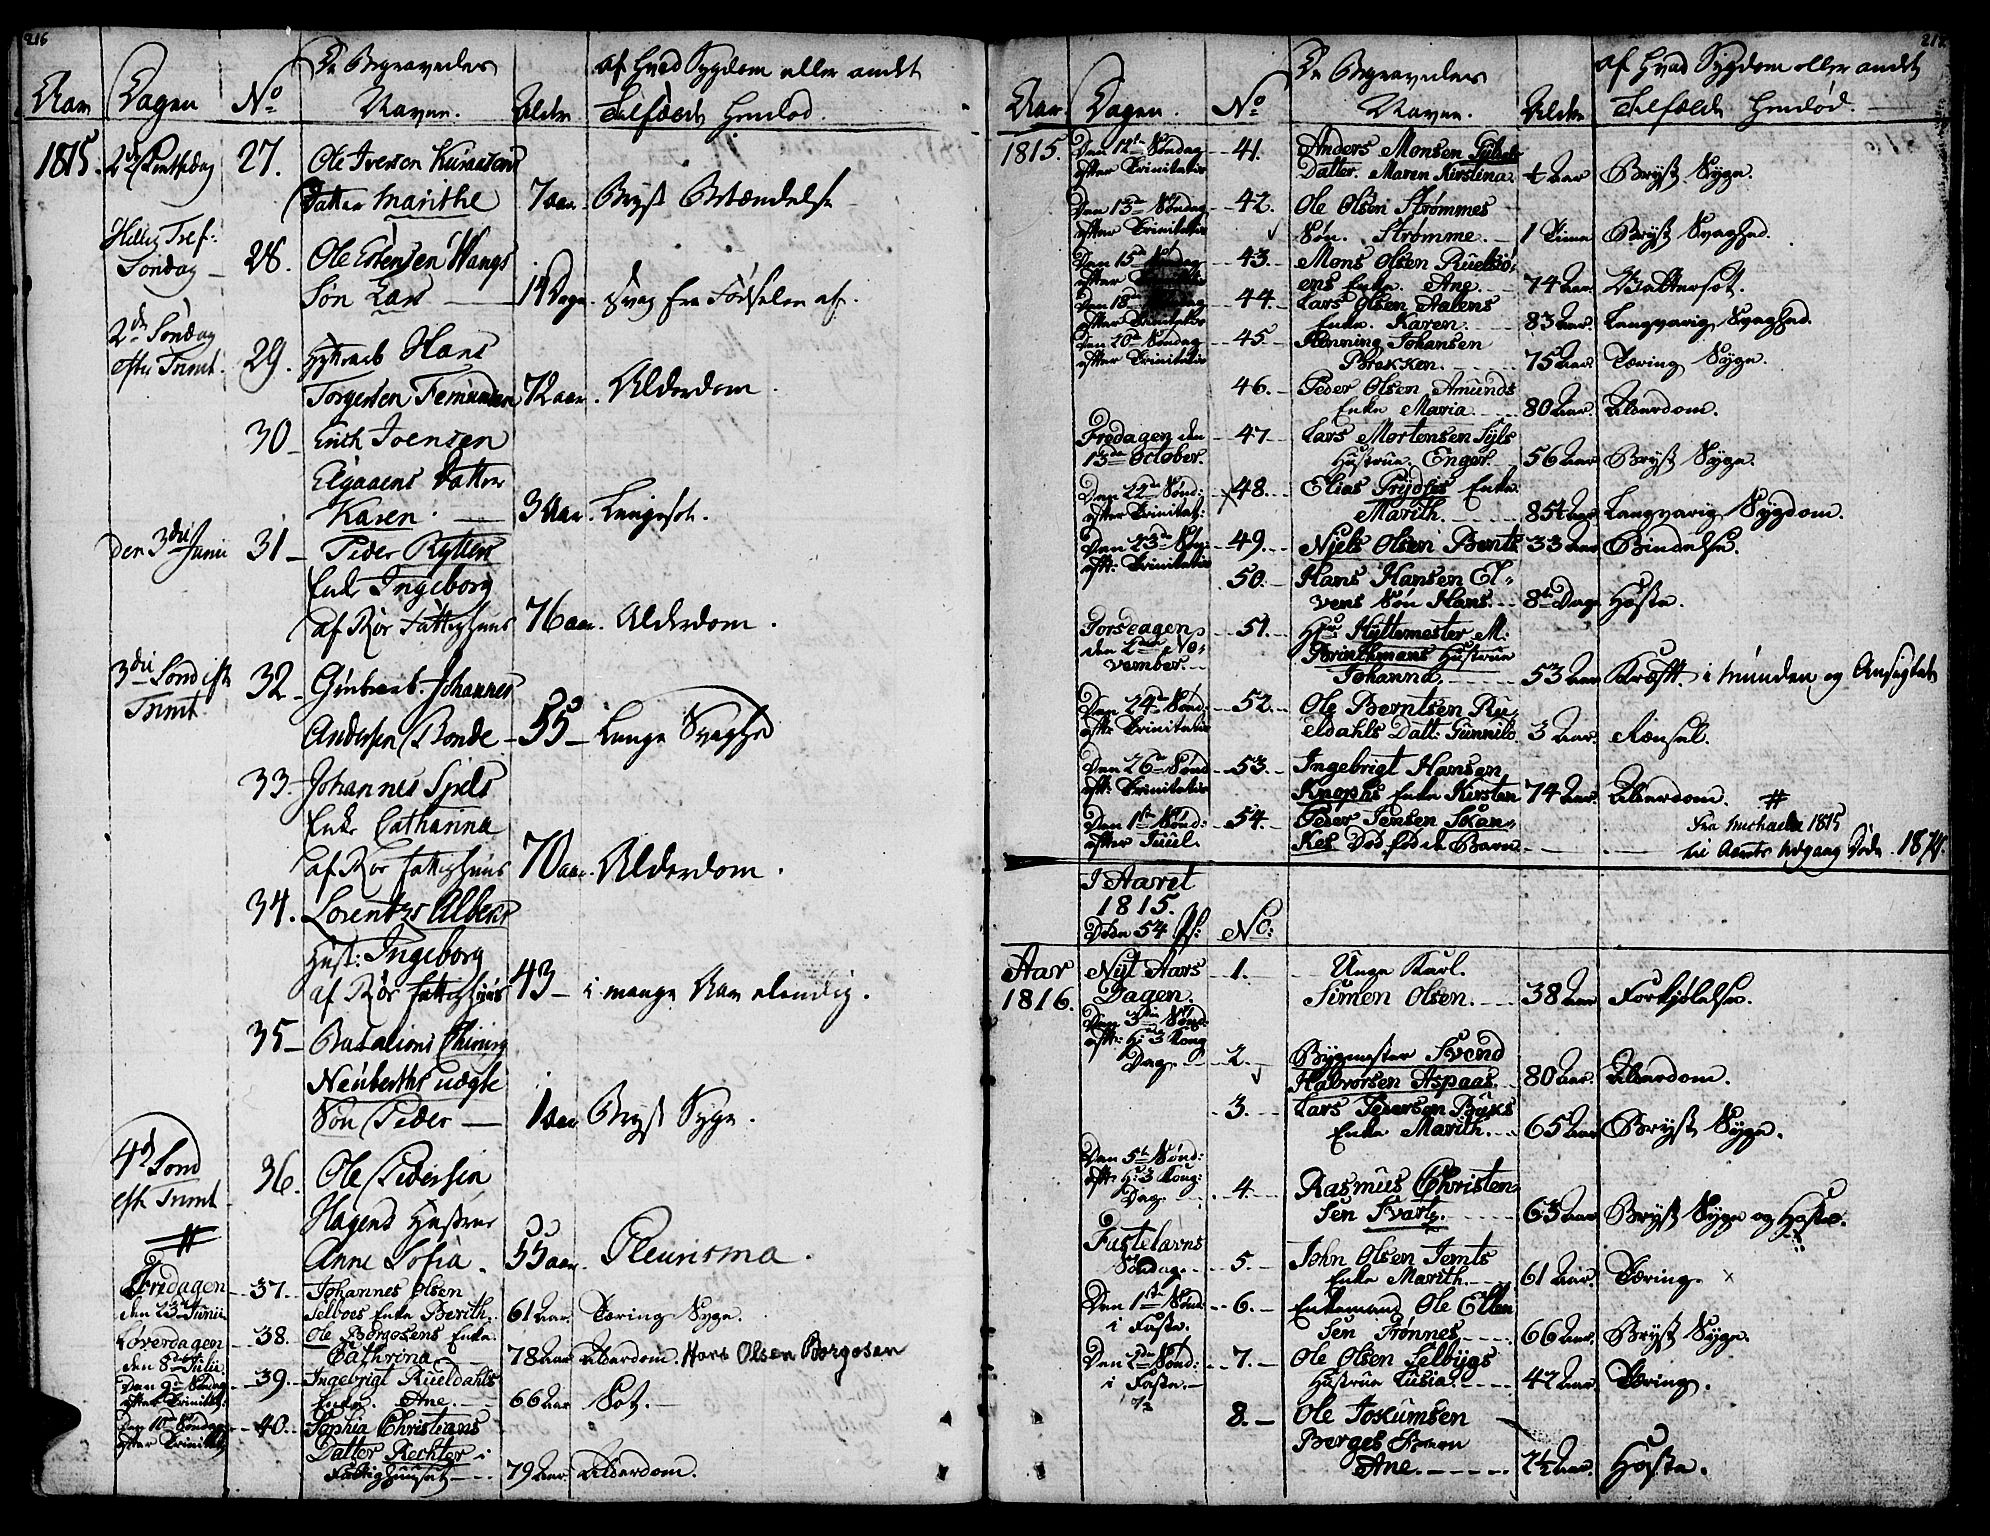 216
Aar Dagen No De Begravedes Navne. Alder af hvad Sygdom eller andet Tilfælde henlod.
1815. 2den Pintsedag 27. Ole Iversen
Datter Marithe 7 aar. Bryst Betændelse
Hellig Tref:
Søndag 28. Ole Estensen Wangs
Søn Lars 14 Dage. svag fra Fødselen af.
2den Søndag
efter Trinit. 29. Hyttearb Hans
Torgersen Femunden 72 aar. Alderdom.
30 Erich Joensen
Elgaaens Datter
Karen. 3 Aar. Lungesot.
den 3die Junii 31 Peder Rytters
Enke Ingeborg
af Rør Fattighuus 76 aar. Alderdom.
3die Sönd efter
Trinit. 32 Grubearb. Johannes
Andersen Bonde 55 Lunge Svaghed
33 Johannes Spels
Enke Catharina
af Rør Fattighuus 70 aar. Alderdom.
34. Lorentz Albens
Hust: Ingeborg
af Rør Fattighuus 43 i mange Aar elendig.
35 Batalions Chirurg
Neuberths uægte
Søn Peder 1 aar Bryst Syge.
4de Sönd
efter Trinit 36. Ole Pedersen
Hagens Hustrue
Anne Sofia. 55 aar. Pleurisma.
Fredagen
den 23de Junii 37. Johannes Olsen
Selboes Enke Berith. 61 Aar. Tæring Syge.
Löverdagen
den 8de Julii 38. Ole Borgosens Enke
Cathrina 78 Aar Alderdom. Hans Olsen Borgosen
Den 9de Søndag
efter Trinitat: 39. Ingebrigt Rueldahls
Enke. Ane. 66 Aar Sot.
Den 10de Søndag
efter Trinitat: 40. Sophia Christians
Datter Rechter i
Fattighuuset 79 Aar. Alderdom.
217
Aar Dagen. No De Begravedes Navne. Alder af hvad Sygdom eller andet Tilfælde henlød.
1815. Den 12te Søndag
efter Trinitatis 41. Anders Monsen
Datter. Maren Kirstina. Aar Bryst Syge.
Den 13de Søndag
efter Trinitatis 42. Ole Olsen Strømmes
Søn. Strømme. 1 Time Bryst Svaghed.
Den 15de
efter 43. Mons Olsen
Enke. Ane. 74 Aar. Wattersot.
Den 18de
efter Trinitatis 44. Lars Olsen Aalens
Enke. Karen. 83 Aar. Langvarig Svaghed.
Den 20de Søndag
efter Trinitatis 45. Henning Johansen
Brekken. 75 Aar. Tæring Syge.
46. Peder Olsen Amunds
Enke Maria. 80 Aar. Alderdom.
Fredagen den
13de October. 47 Lars Mortensen Syls
Hustrue. Enger. 56 Aar Bryst Syge.
Den 22de Sønd:
efter Trinitat: 48. Elias Enke
Marith. Aar Langvarig Sygdom.
Den 23de Søn:
eft: Trinitatis 49. Niels Olsen Bents 33 Aar Bindelse.
50. Hans Hansen El-
vens Søn Hans. 8te Dag Hoste.
Torsdagen
den 2den No-
vember. 51. Hr: Hyttemester M:
Printhmans Hustrue
Johanna. 53 Aar Kræft i Munden og Ansigtet
Den 24de Sønd:
eft: Trinitatis 52. Ole Berntsen Ru-
eldahls Datt: Gunnild. 3 Aar.
Den 26de Sønd
eft: Trinitatis 53. Ingebrigt Hansen
Knophs Enke Kirsten 74 Aar. Alderdom.
Den 1ste Sønd:
efter Juul. 54. Peder Jensen Skan-
Kes Død fødde Barn. Fra Michaeli 1815
til Aarets Udgang Døde
I Aaret
1815.
Døde 54 No:
Aar
1816. Nyt Aars
Dagen. 1. Unge Karl.
Simen Olsen. 38 Aar Forkjølelse.
Den 3die Sønd:
eft: H: 3 Kong
Dag. 2. Bygmester Svend
Halvorsen Aspaas. 80 Aar. Alderdom.
3. Lars Pedersen Byks
Enke Marith. 65 Aar Bryst Syge.
Den 5te Sønd:
eft: H: 3 Kong:
Dag. 4. Rasmus Christen-
sen Svart. 63 Aar Bryst Syge og Hoste.
Fastelavns
Søndag. 5. John Olsen Jemts
Enke Marith. 61 Aar. Tæring.
Den 1ste Sønd:
i Faste. 6. Enkemand Ole Ellen
Sen Trønnes. 66 Aar. Bryst Syge.
Den 2den Sønd:
i Faste. 7. Ole Olsen Selbygs
Hustrue Lusia. 42 Aar. Tæring.
8. Ole Jokumsen
Berges Barn
Ane. 2½ Aar. Hoste.